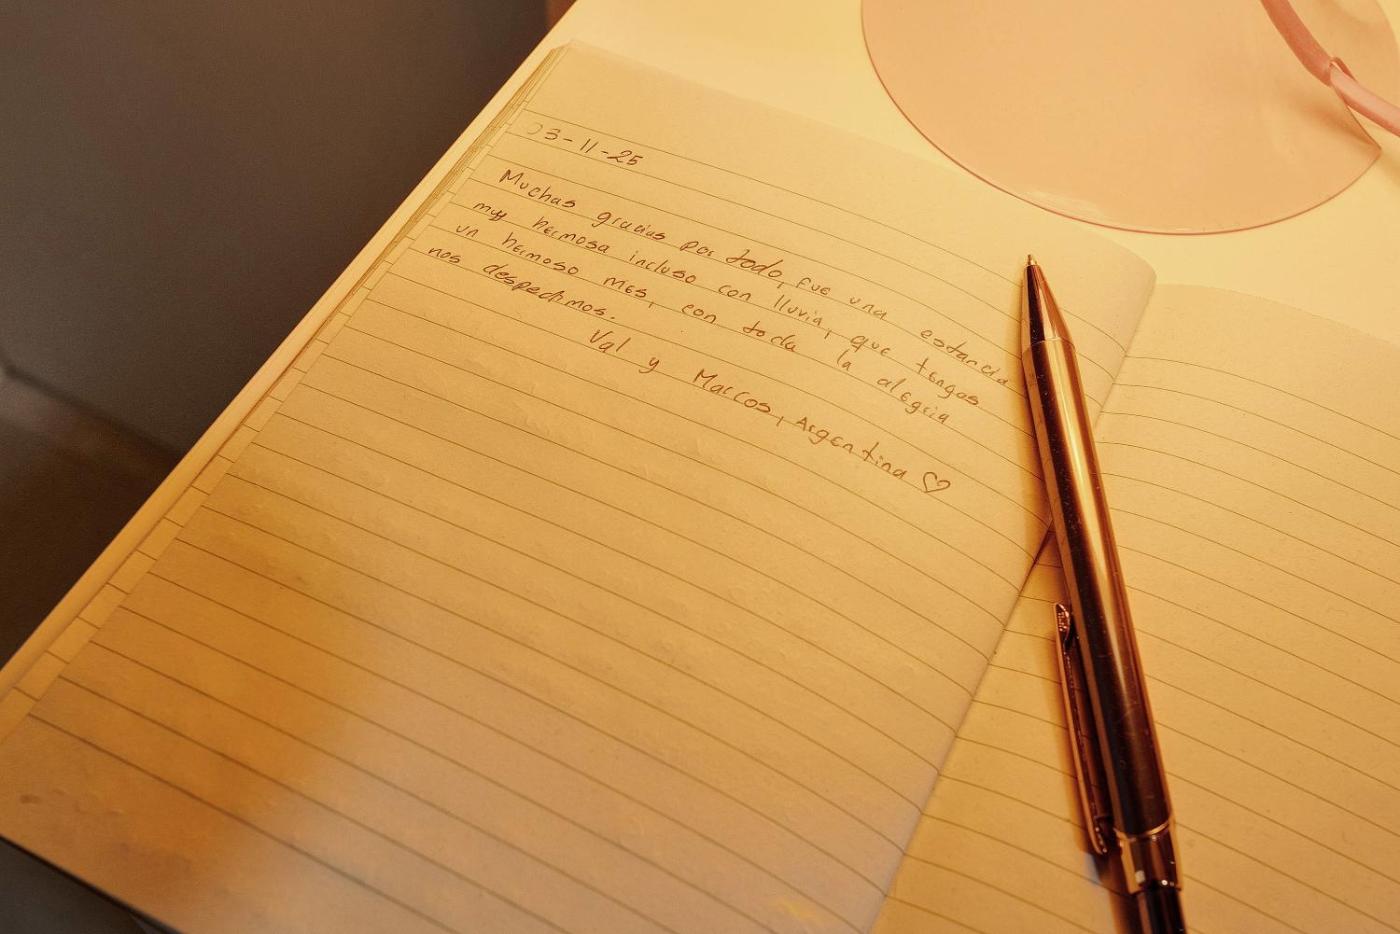 03-11-25
Muchas gracias por todo, fue una estancia
muy hermosa incluso con lluvia, que tengas
un hermoso mes, con toda la alegria
nos despedimos.
Val y Marcos, Argentina ♡